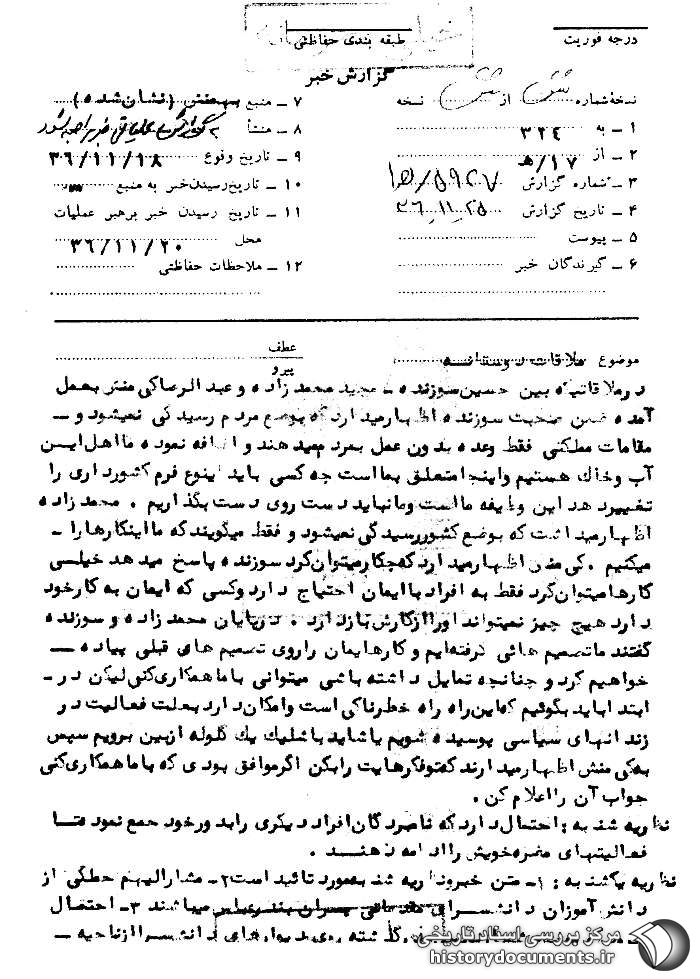 درجه فوریت
طبقه بندی حفاظتی
گزارش خبر
نسخه شماره شش از شش نسخه
۱ ـ به ۳۲۴
۲ ـ از ۱۷/ ه
۳ ـ شماره گزارش
۴ ـ تاریخ گزارش
۵ ـ پیوست
۶ ـ گیرندگان خبر
۷ ـ منبع بهمنش (نشان شده)
۸ ـ منشأ
۹ ـ تاریخ وقوع ۳۶/۱۱/۱۸
۱۰ ـ تاریخ رسیدن خبر به منبع
۱۱ ـ تاریخ رسیدن خبر برهبر عملیات
محل ۳۶/۱۱/۲۰
۱۲ ـ ملاحظات حفاظتی
موضوع ملاقات دوستانه
عطف
پیرو
در ملاقاتیکه بین حسین سوزنده ـ مجید محمد زاده و عبد الرضا کی منش بعمل
آمده ضمن صحبت سوزنده اظهار میدارد که بوضع مردم رسیدگی نمیشود و ـ
مقامات مملکتی فقط وعده بدون عمل بمردم میدهند و اضافه نموده ما اهل این
آب و خاک هستیم و اینجا متعلق بما است چه کسی باید اینوع فرم کشورداری را
تغییر دهد این وظیفه ما است و ما نباید دست روی دست بگذاریم . محمد زاده
اظهار میداشت که بوضع کشور رسیدگی نمیشود و فقط میگویند که ما اینکارها را ـ
میکنیم . کی منش اظهار میدارد که چکار میتوان کرد سوزنده پاسخ میدهد خیلی
کارها میتوان کرد فقط به افراد با ایمان احتیاج دارد و کسی که ایمان به کار خود
دارد هیچ چیز نمیتواند او را از کارش باز دارد . در پایان محمد زاده و سوزنده
گفتند ما تصمیم هائی گرفته ایم و کارهایمان را روی تصمیم های قبلی پیاده ـ
خواهیم کرد و چنانچه تمایل داشته باشی میتوانی با ما همکاری کنی لیکن در ـ
ابتدا باید بگوئیم که این راه راه خطرناکی است و امکان دارد بعلت فعالیت در
زندانهای سیاسی پوسیده شویم یا شاید با شلیک یک گلوله از بین برویم سپس
به کی منش اظهار میدارند که تو فکرهایت را بکن اگر موافق بودی که با ما همکاری کنی
جواب آن را اعلام کن .
نظریه شنبه : احتمال دارد که نامبردگان افراد دیگری را بدور خود جمع نموده تا
فعالیتهای مضره خویش را ادامه دهند .
نظریه یکشنبه : ۱ـ متن خبر و نظریه شنبه مورد تائید است ۲ـ مشارالیهم جملگی از
دانش آموزان دانشسرای پسران میباشند ۳ـ احتمال
گذشته روی دیوارهای دانشسرا از ناحیه ـ
مرکز بررسی اسناد تاریخی
historydocuments.ir